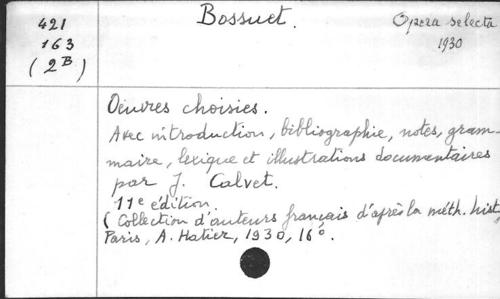 421
163
(2B)
Bossuet.
Opera selecta
1930
Oeuvres choisies.
Avec introduction, bibliographie, notes, gram-
maire, lexique et illustrations documentaires
par J. Calvet.
11e édition.
(Collection d'auteurs français d'après la méth. hist.
Paris, A. Hatier, 1930, 16º.